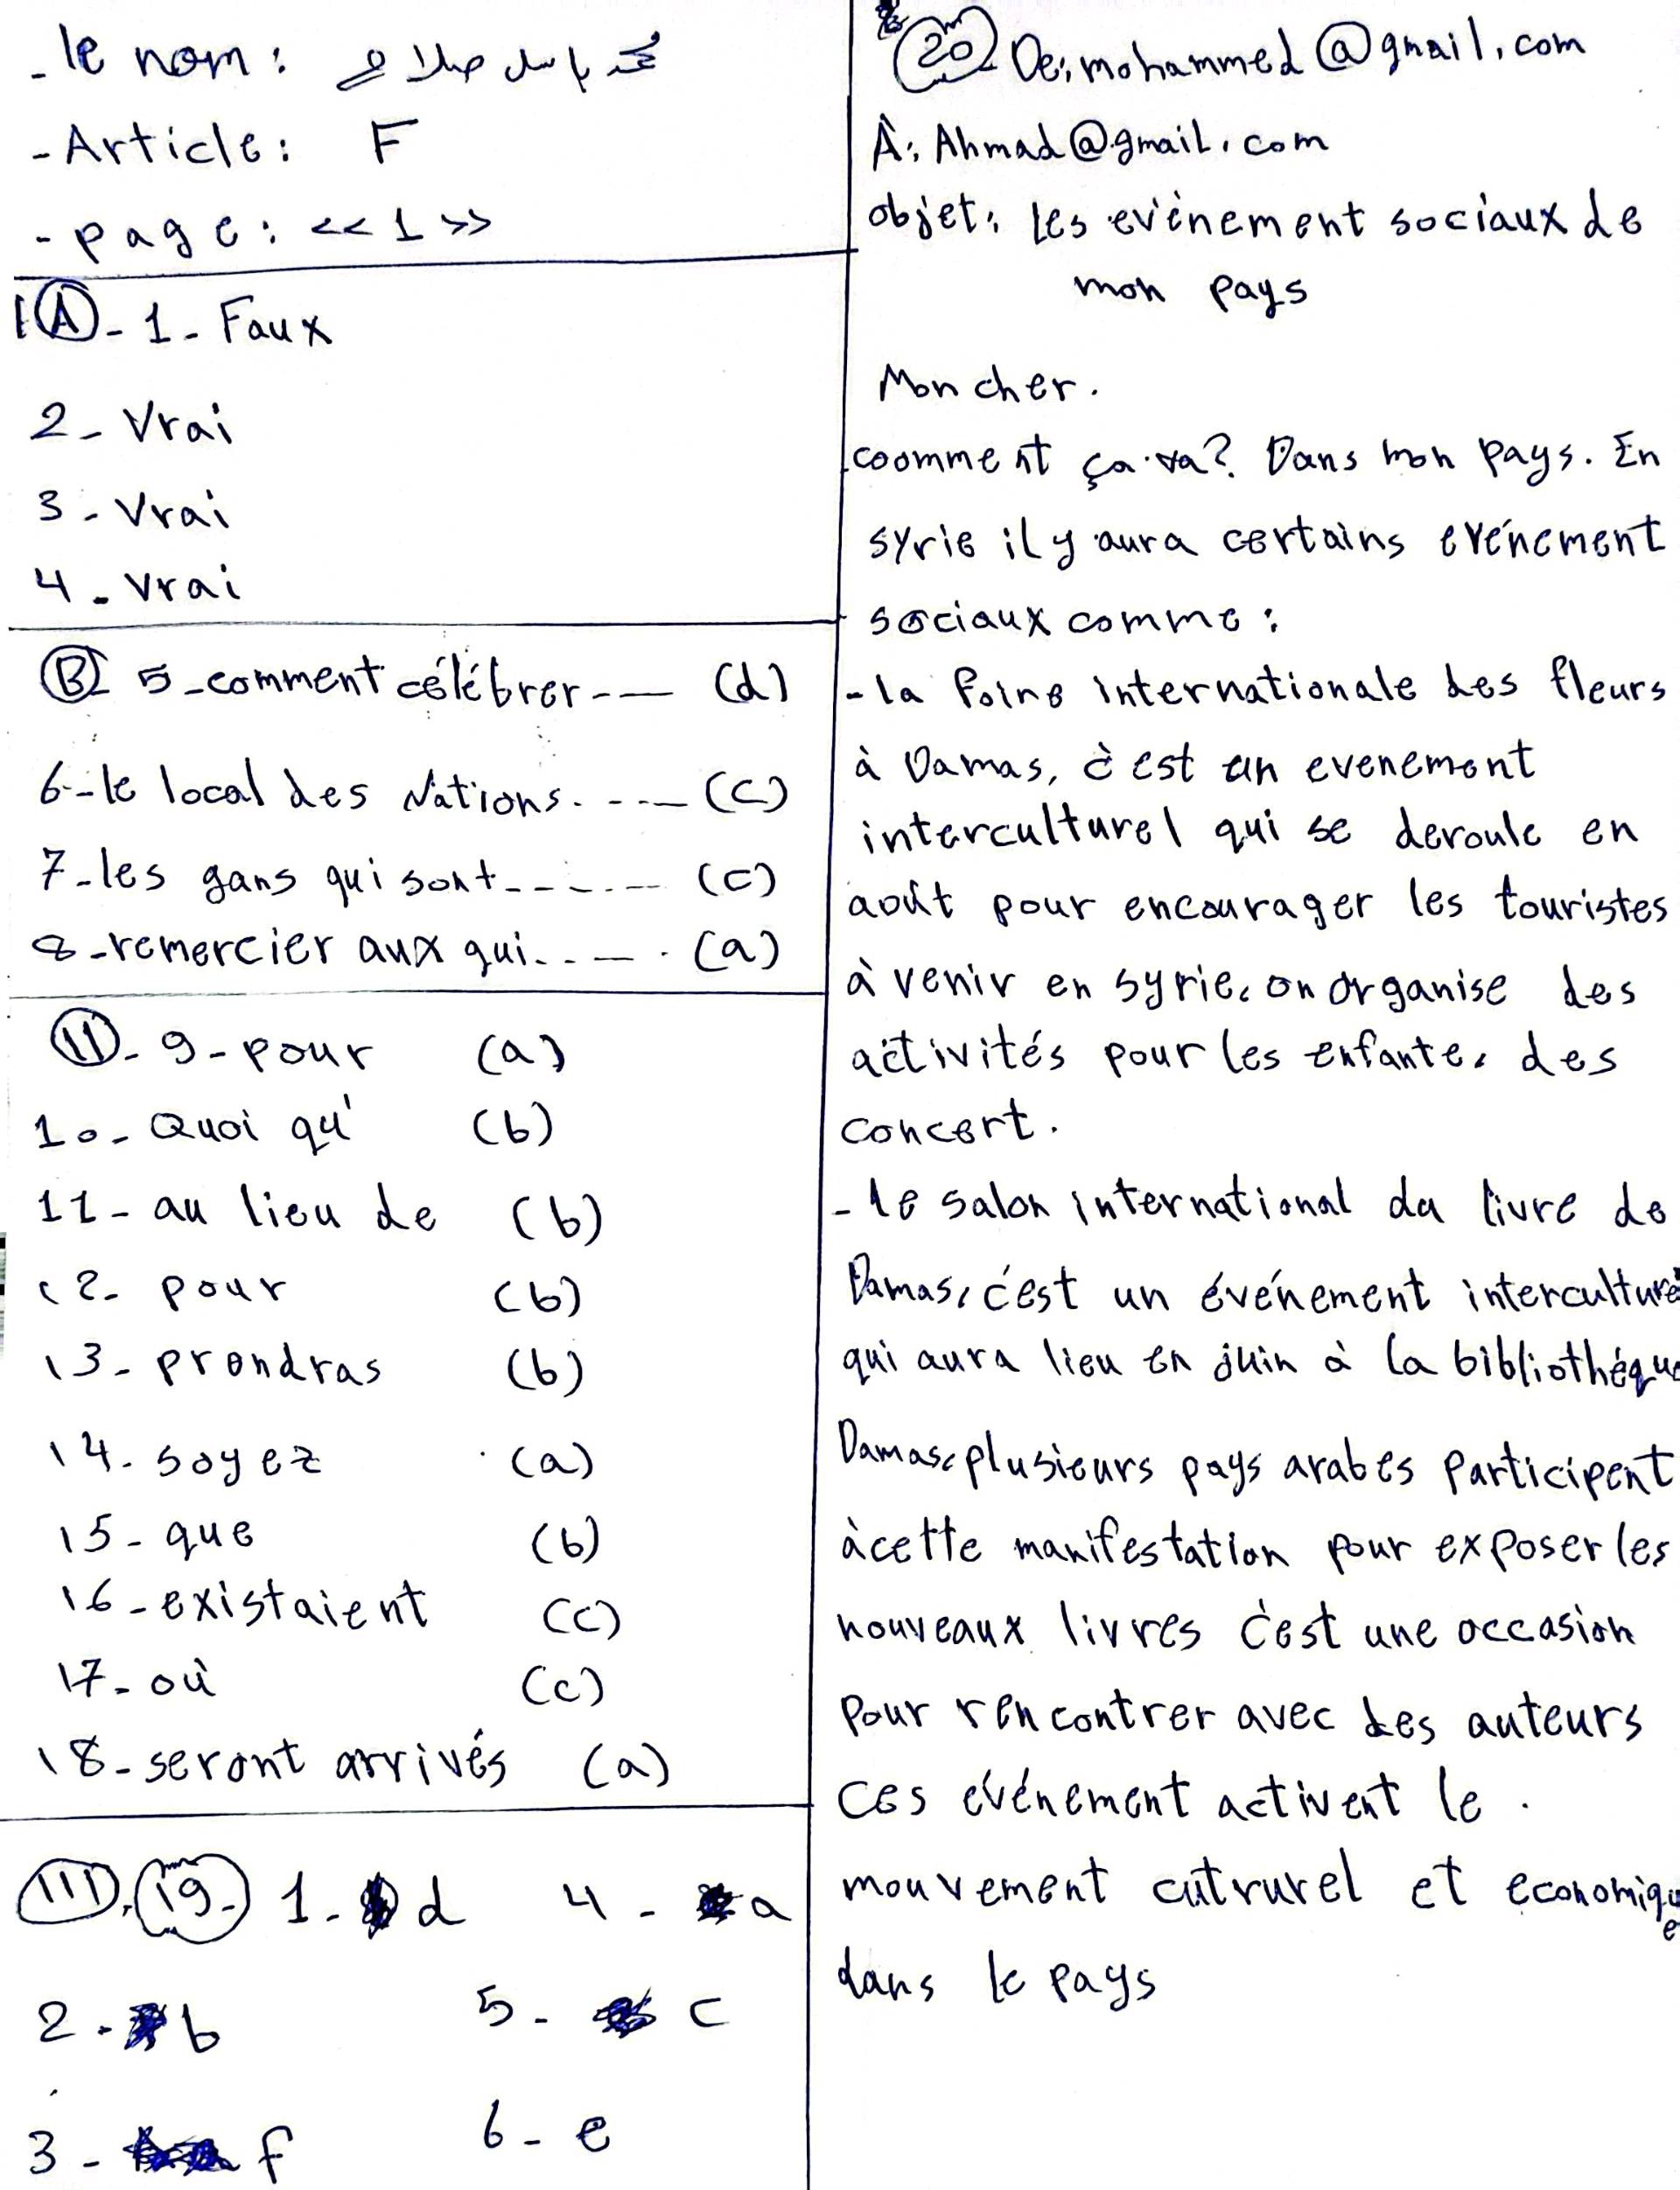 - le nom: محمد باسل صلاح
- Article: F
- page: << 1 >>
I (A) - 1 - Faux
2 - Vrai
3 - Vrai
4 - Vrai
(B) 5 - comment célébrer --- (d)
6 - le local des Nations. --- (c)
7 - les gans qui sont ------ (c)
8 - remercier aux qui. . --- . (a)
(II) - 9 - pour (a)
10 - Quoi qu' (b)
11 - au lieu de (b)
12 - pour (b)
13 - prendras (b)
14 - soyez (a)
15 - que (b)
16 - existaient (c)
17 - où (c)
18 - seront arrivés (a)
(III). (19.) 1 - d 4 - a
2 - b 5 - c
3 - f 6 - e
(20) De: mohammed@gmail.com
À: Ahmad@gmail.com
objet: les evénement sociaux de
mon pays
Mon cher.
coomment ça va? Dans mon pays. En
syrie il y aura certains evénement
sociaux comme:
- la foire internationale des fleurs
à Damas, c'est un evenement
interculturel qui se deroule en
août pour encourager les touristes
à venir en syrie, on organise des
activités pour les enfante, des
concert.
- le salon international du livre de
Damas, c'est un événement interculture
qui aura lieu en juin à la bibliothéque
Damas, plusieurs pays arabes participent
à cette manifestation pour exposer les
nouveaux livres c'est une occasion
pour rencontrer avec des auteurs
ces événement activent le .
mouvement cutrurel et economique
dans le pays